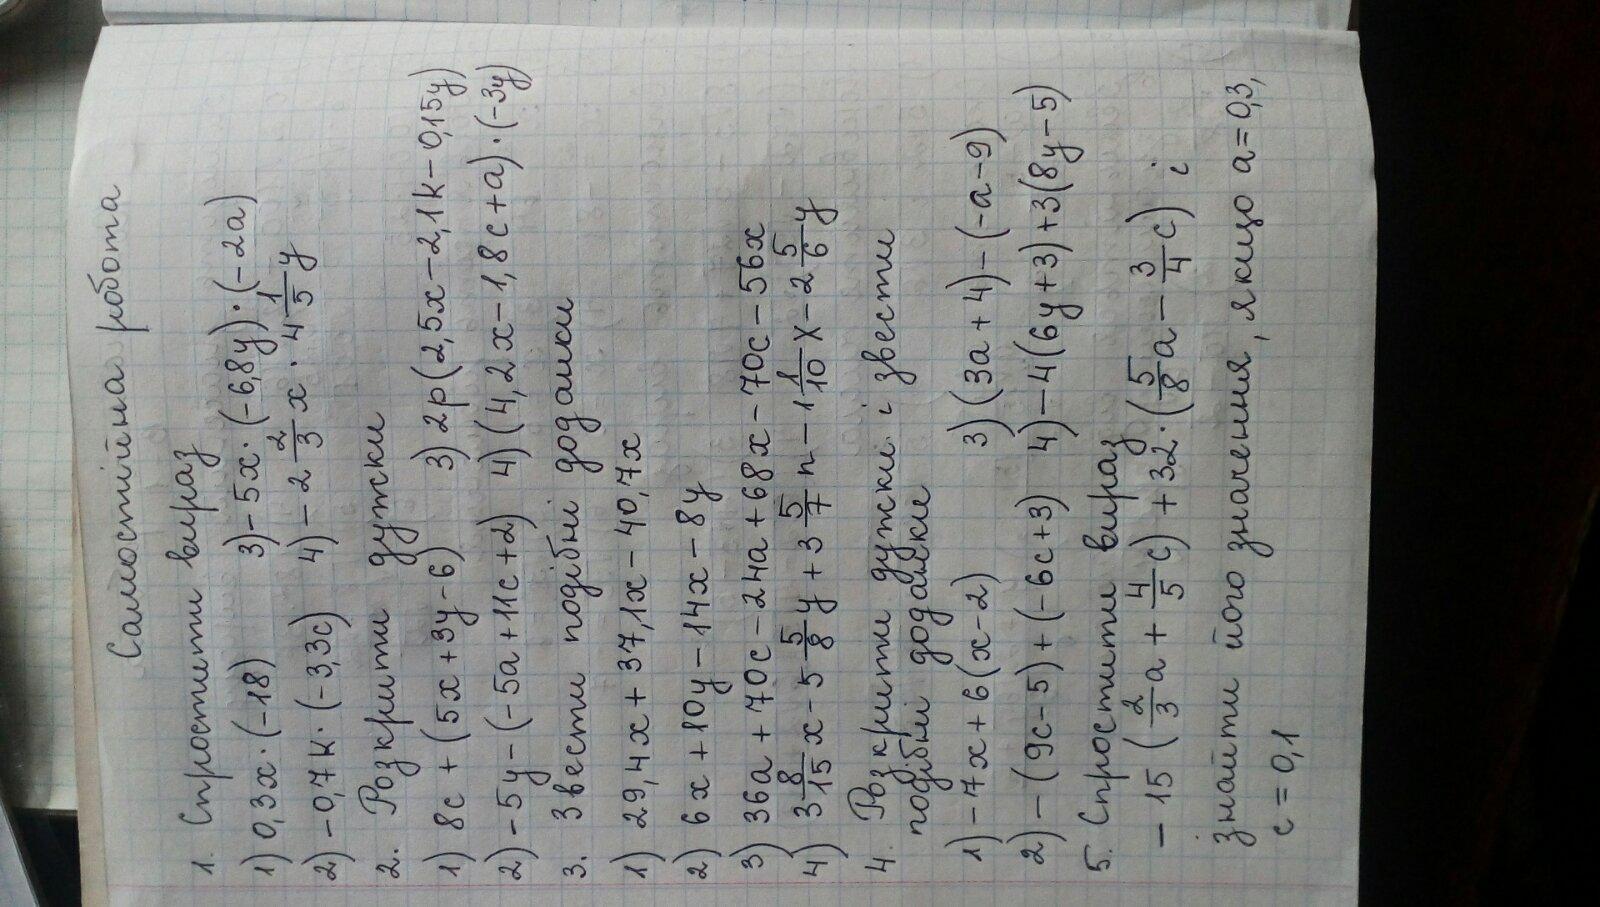 Самостійна робота
1. Спростити вираз
1) 0,3x·(-18) 3) -5x·(-6,8y)·(-2a)
2) -0,7k·(-3,3c) 4) -2 2/3 x · 4 1/5 y
2. Розкрити дужки
1) 8c + (5x+3y-6) 3) 2p(2,5x-2,1k-0,15y)
2) -5y-(-5a+11c+2) 4) (4,2x-1,8c+a)·(-3y)
3. Звести подібні доданки
1) 29,4x+37,1x-40,7x
2) 6x+10y-14x-8y
3) 36a+70c-24a+68x-70c-56x
4) 3 8/15 x - 5 5/8 y + 3 5/7 n - 1 1/10 x - 2 5/6 y
4. Розкрити дужкі і звести
подібні доданки
1) -7x+6(x-2) 3) (3a+4)-(-a-9)
2) -(9c-5)+(-6c+3) 4) -4(6y+3)+3(8y-5)
5. Спростити вираз
-15(2/3 a + 4/5 c) + 32·(5/8 a - 3/4 c) і
знайти його значення, якщо a=0,3,
c=0,1